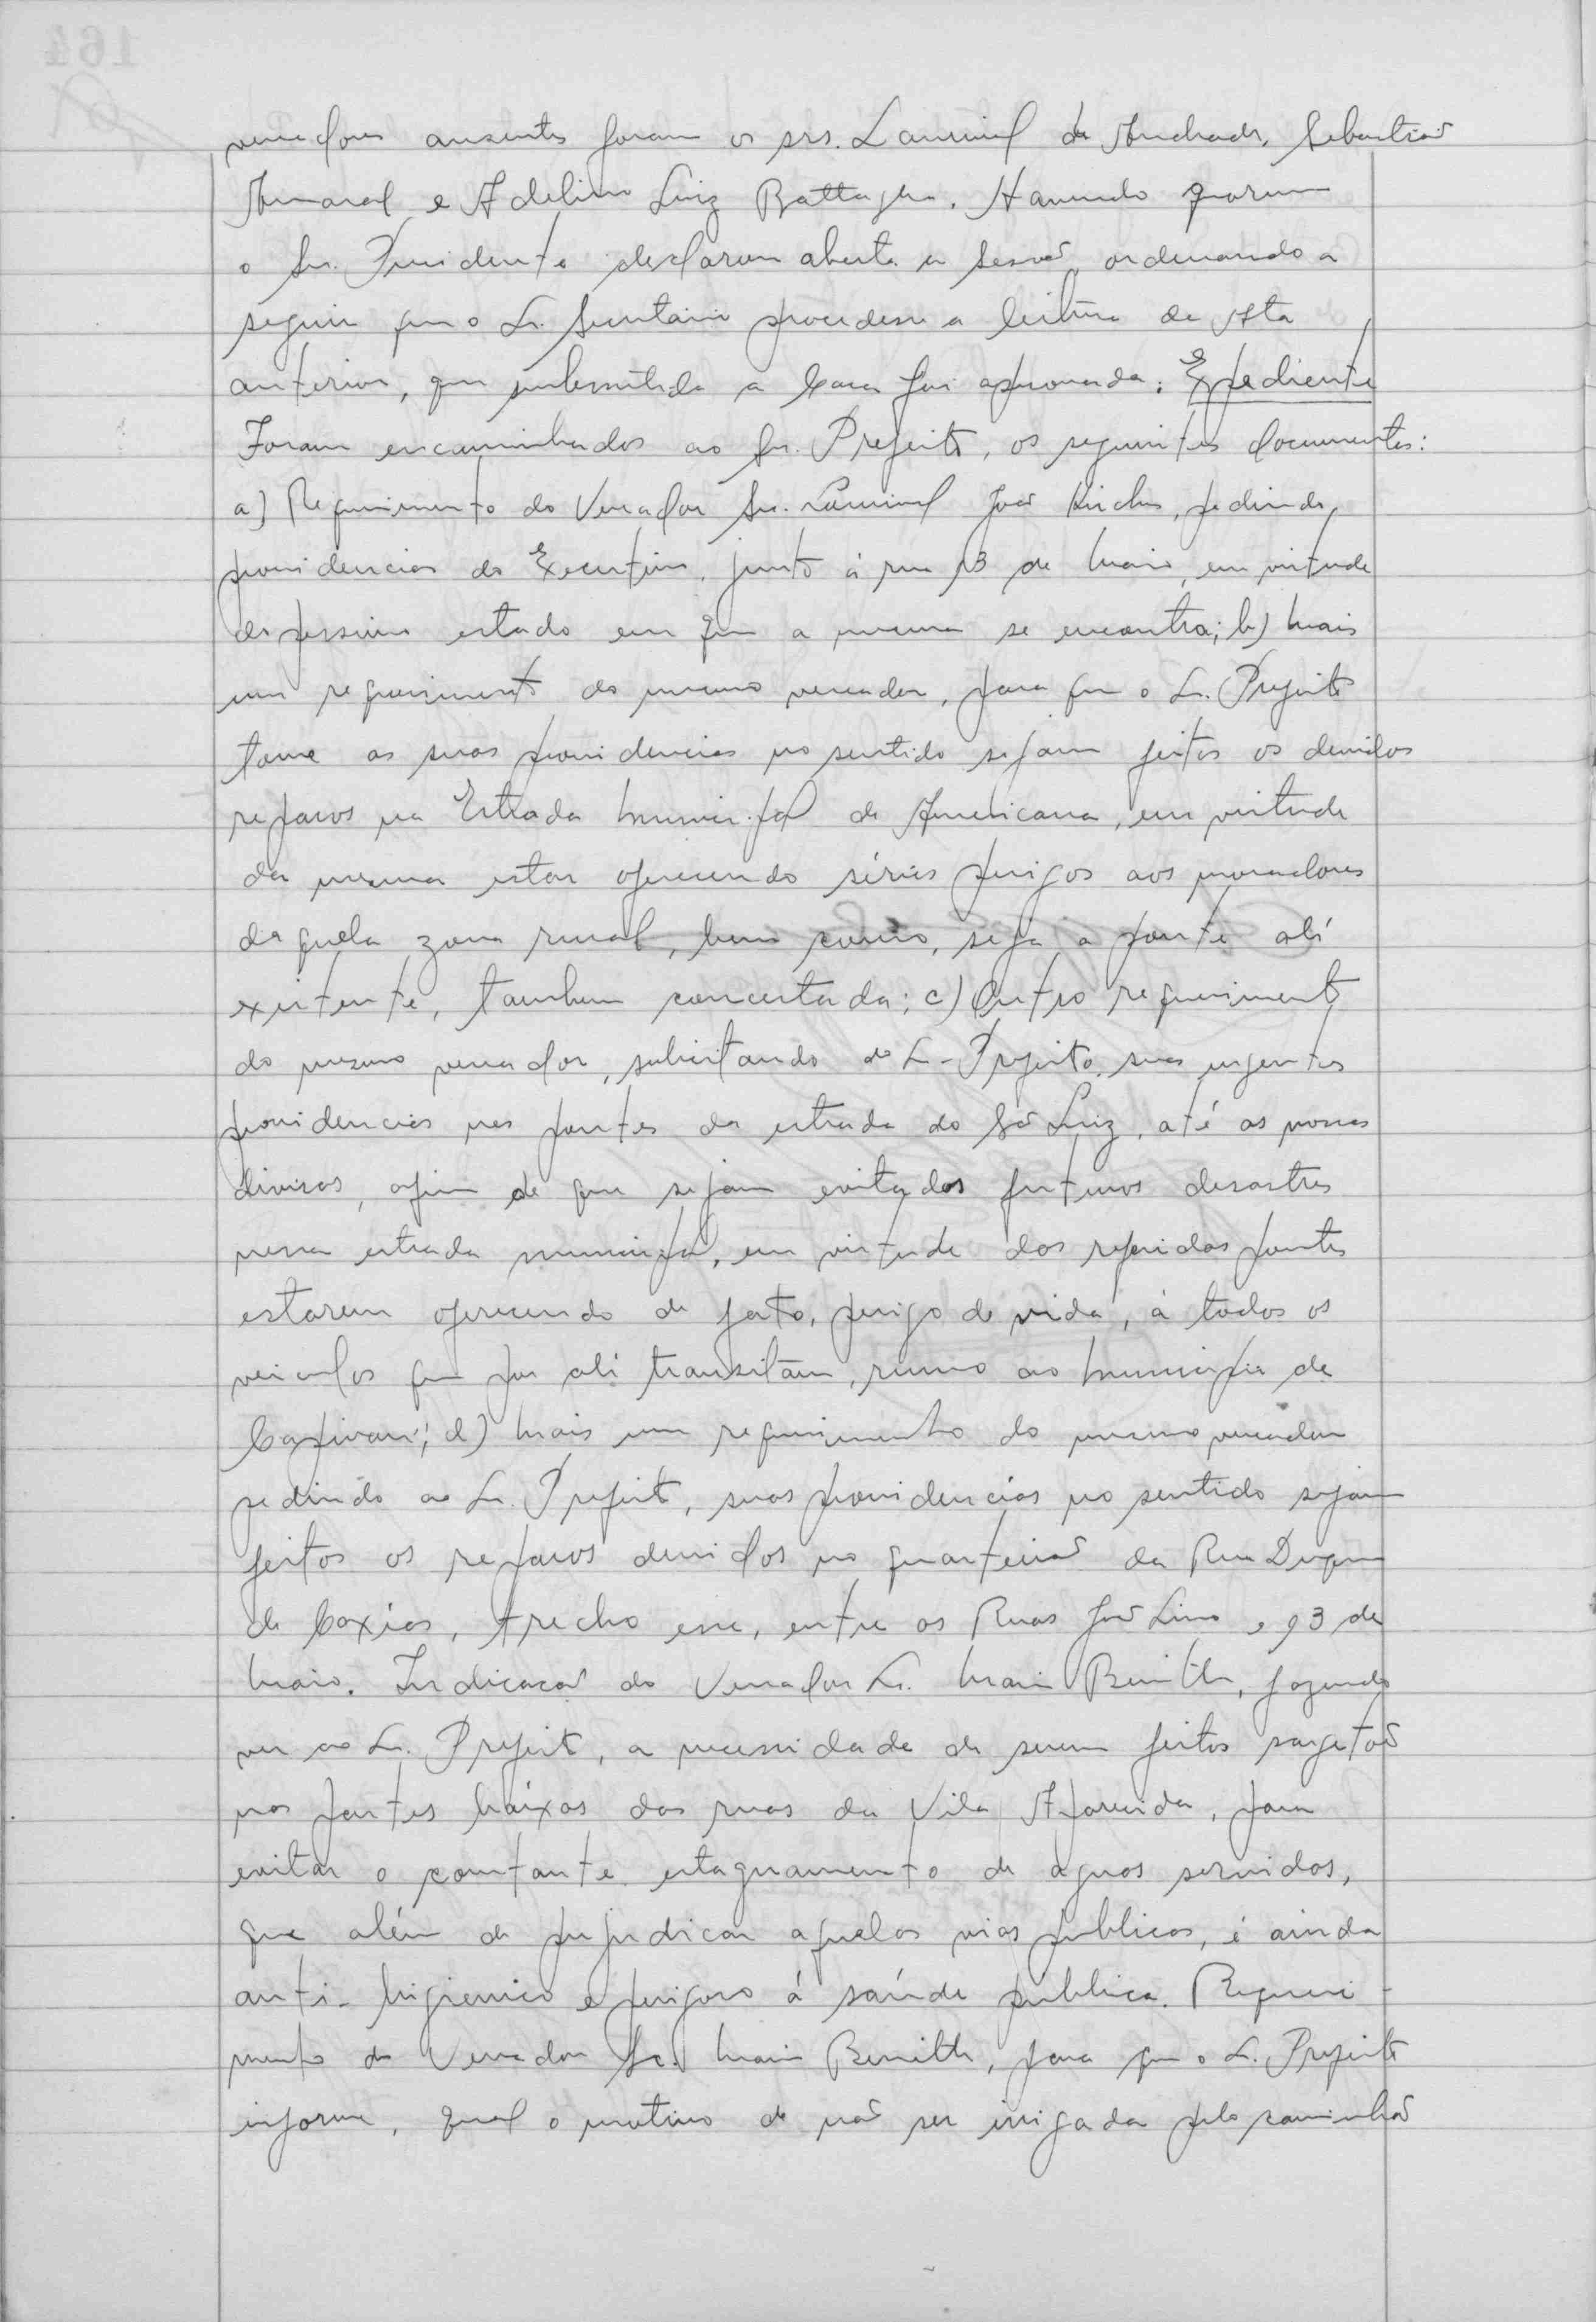 vereadores ausentes foram os srs. Laurival de Andrade, Sebastião
Amaral e Adelino Luiz Battaglia. Havendo quorum
o Sr. Presidente declarou aberta a sessão, ordenando a
seguir que o Sr. Secretário procedesse a leitura da Ata
anterior, que submetida a Casa foi aprovada: Expediente
Foram encaminhados ao Sr. Prefeito, os seguintes documentos:
a) Requerimento do Vereador Sr. João, pedindo
providencias do Executivo, junto á rua 13 de Maio, em virtude
do pessimo estado em que a mesma se encontra; b) Mais
um requerimento do mesmo vereador, para que o Sr. Prefeito
tome as suas providencias no sentido sejam feitos os devidos
reparos na Estrada Municipal de Americana, em virtude
da mesma estar oferecendo sérios perigos aos moradores
daquela zona rural, bem como, seja a ponte alí
existente, tambem concertada; c) Outro requerimento
do mesmo vereador, solicitando do Sr. Prefeito, suas urgentes
providencias nas pontes da estrada do São Luiz, até as nossas
divisas, afim de que sejam evitados futuros desastres
nessa estrada municipal, em virtude das referidas pontes
estarem oferecendo de fato, perigo de vida, á todos os
veiculos que por alí transitam, rumo ao Municipio de
Capivari; d) Mais um requerimento do mesmo vereador
pedindo ao Sr. Prefeito, suas providencias no sentido sejam
feitos os reparos devidos no quarteirão da Rua Duque
de Caxias, trecho esse, entre as Ruas José Lino e 13 de
Maio. Indicação do Vereador Sr. Mario, fazendo
ver ao Sr. Prefeito, a necessidade de serem feitos sargetão
nas partes baixas das ruas da Vila Aparecida, para
evitar o constante estagnamento de aguas servidas,
que além de prejudicar aquelas vias publicas, é ainda
anti-higienico e perigoso á saúde pública. Requeri-
mento do Vereador Sr. Mario, para que o Sr. Prefeito
informe, qual o motivo de não ser irrigada pelo caminhão